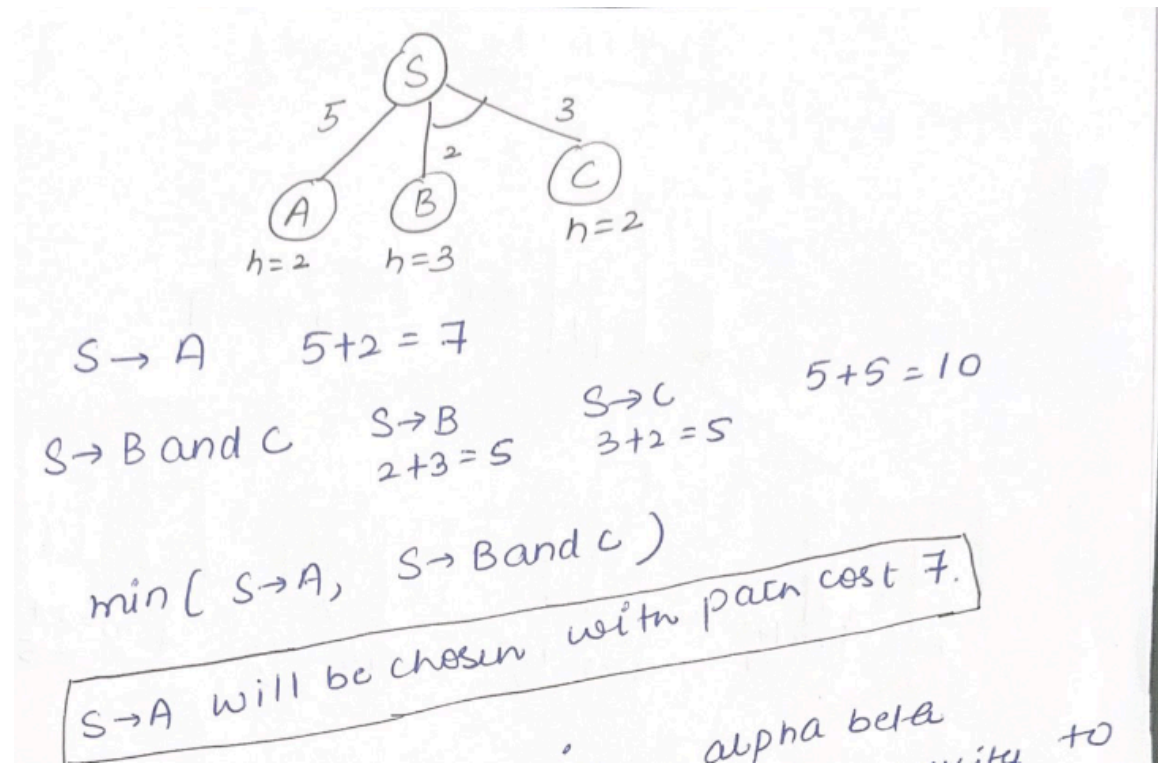 S
5
3
2
A
B
C
h=2
h=3
h=2
S→A 5+2=7
S→B and C S→B S→C 5+5=10
2+3=5 3+2=5
min( S→A, S→B and C )
S→A will be chosen with path cost 7.
alpha beta
to